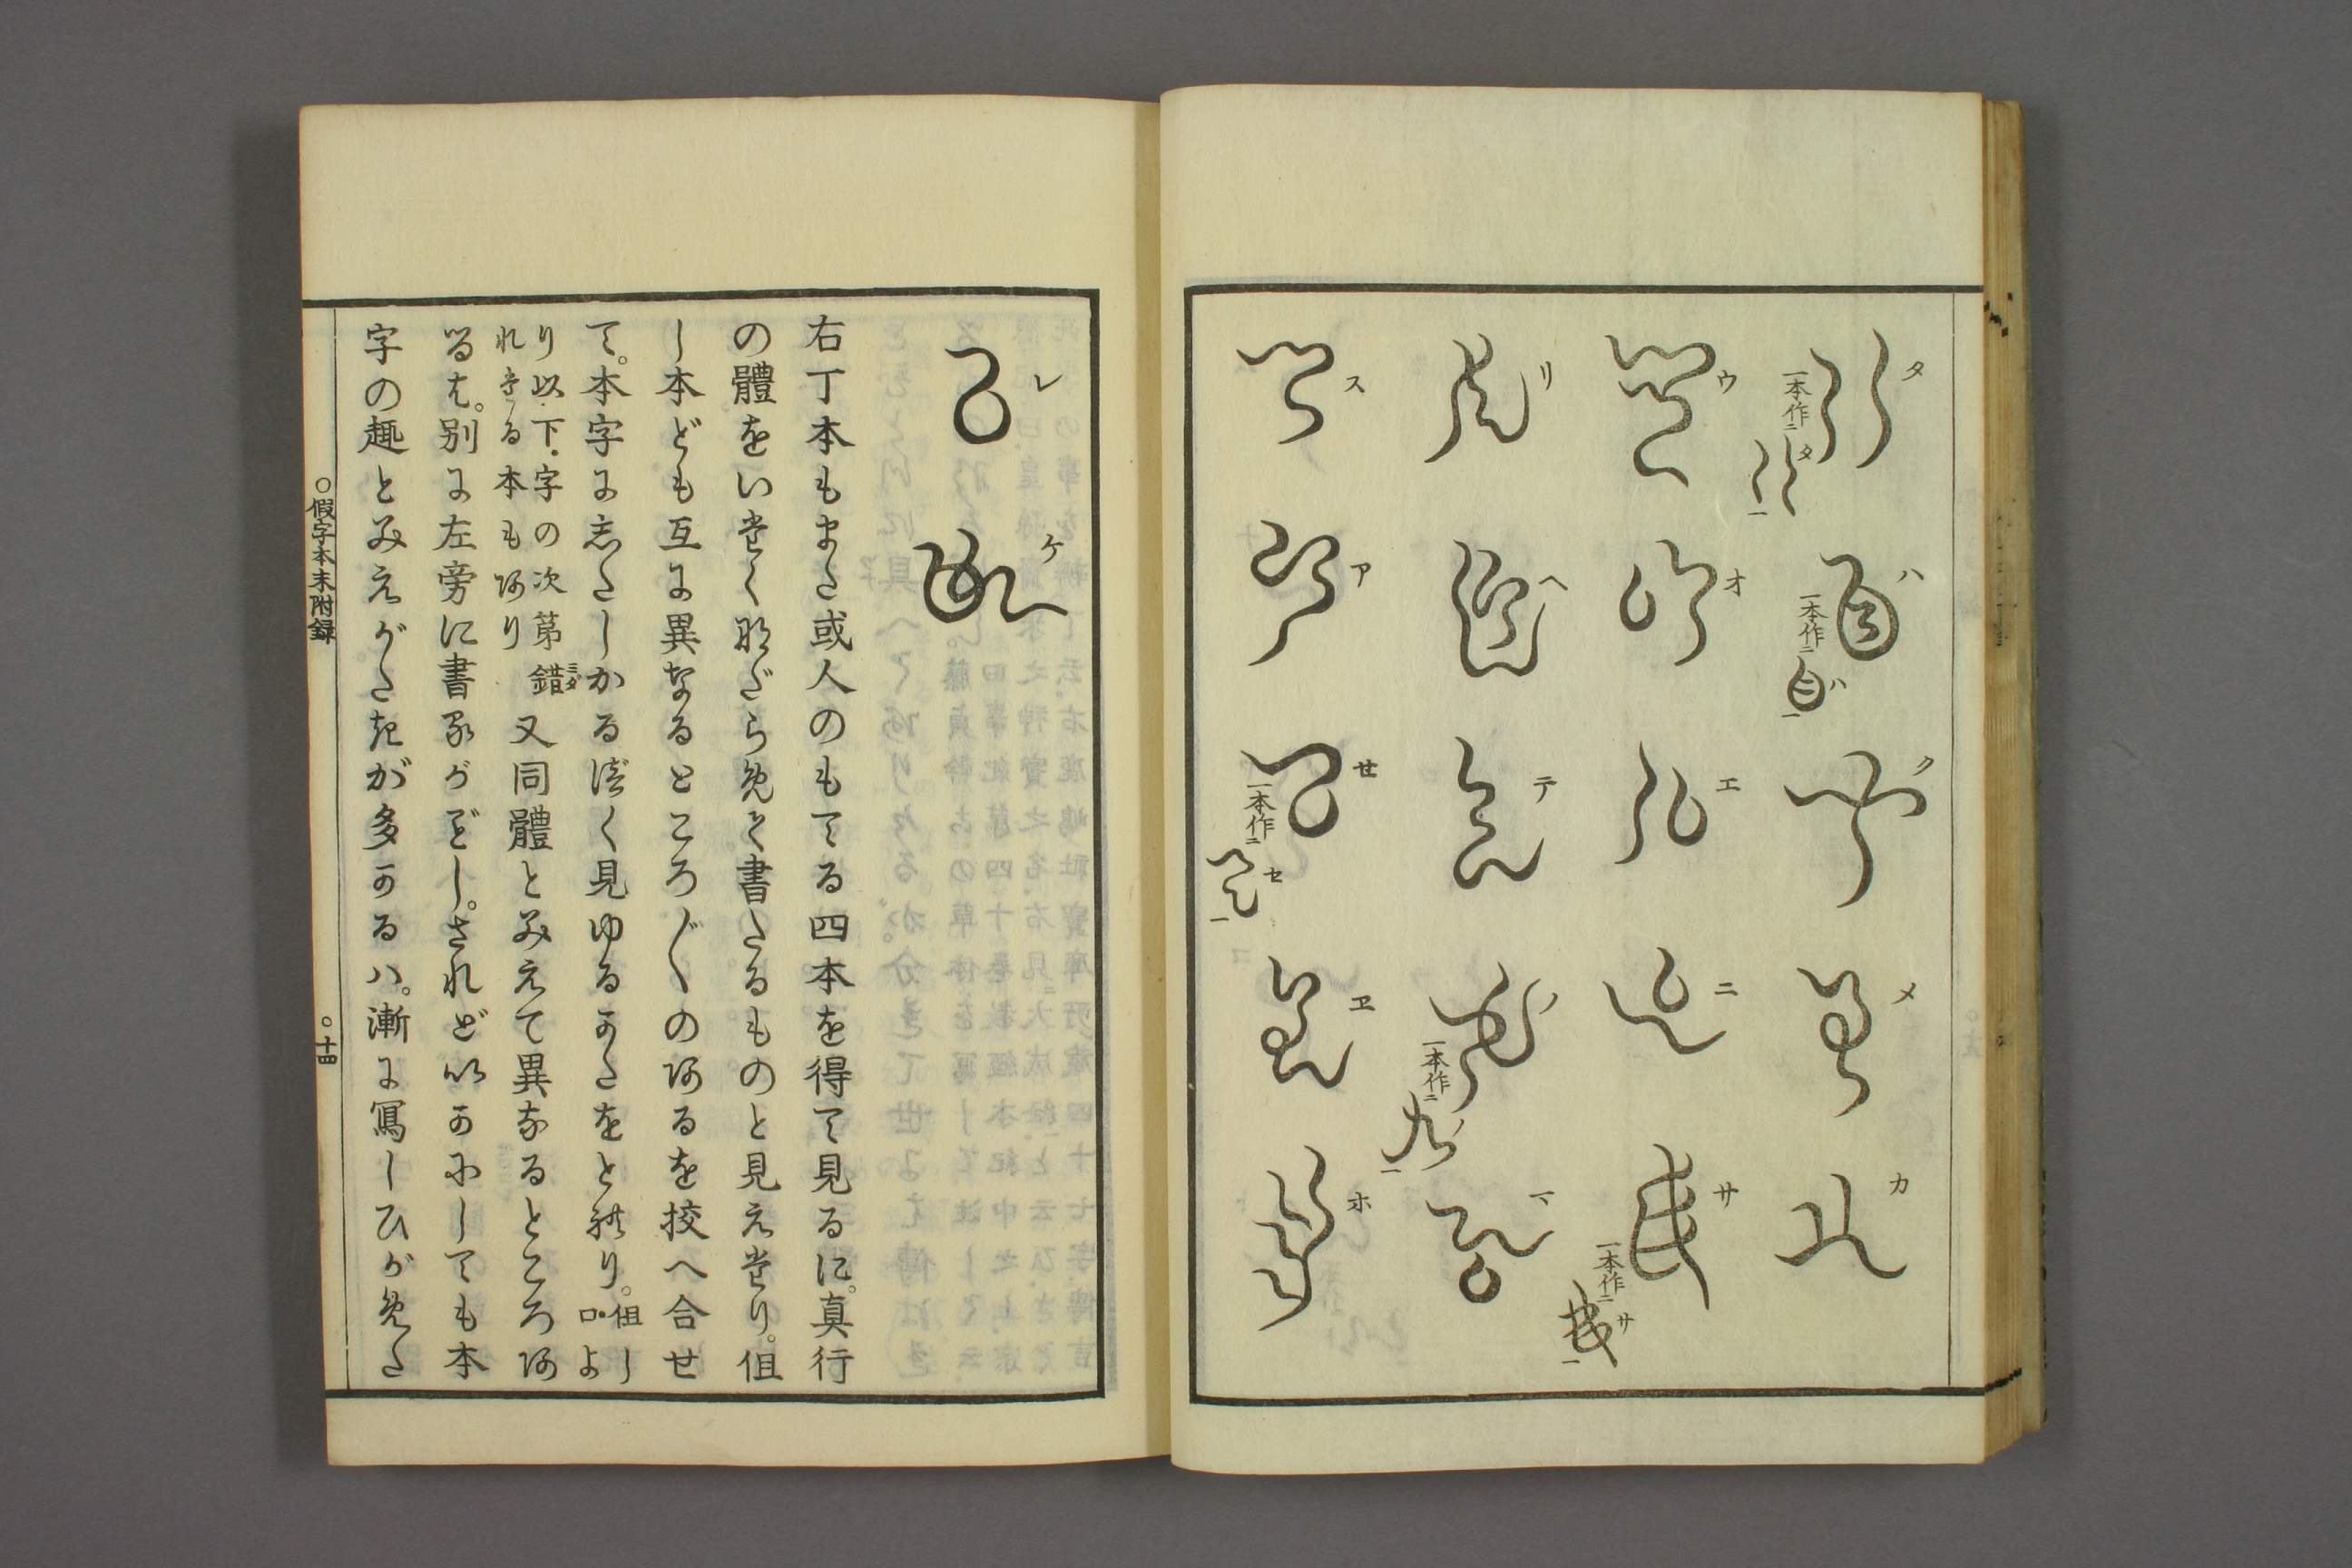 タ 一本作ニ タ 一 ハ 一本作ニ ハ 一 ク メ カ
ウ オ エ ニ サ 一本作ニ サ 一
リ ヘ テ ノ 一本作ニ 一 マ
ス ア セ 一本作ニ セ 一 ヱ ホ
レ ケ
右丁本もまた或人のもてる四本を得て見るに。真行
の體をいたく那だらめて書たるものと見えたり。但
し本ども互に異なるところ〴〵のあるを挍へ合せ
て。本字に志たしかるべく見ゆるかたをとれり。但し口よ
り以下。字の次第錯ミダれたる本もあり 又同體とみえて異なるところあ
るは。別に左旁に書るがごとし。されどいかにしても本
字の趣とみえがたきが多かるハ。漸に寫しひがめた
○假字本末附録 ○十四